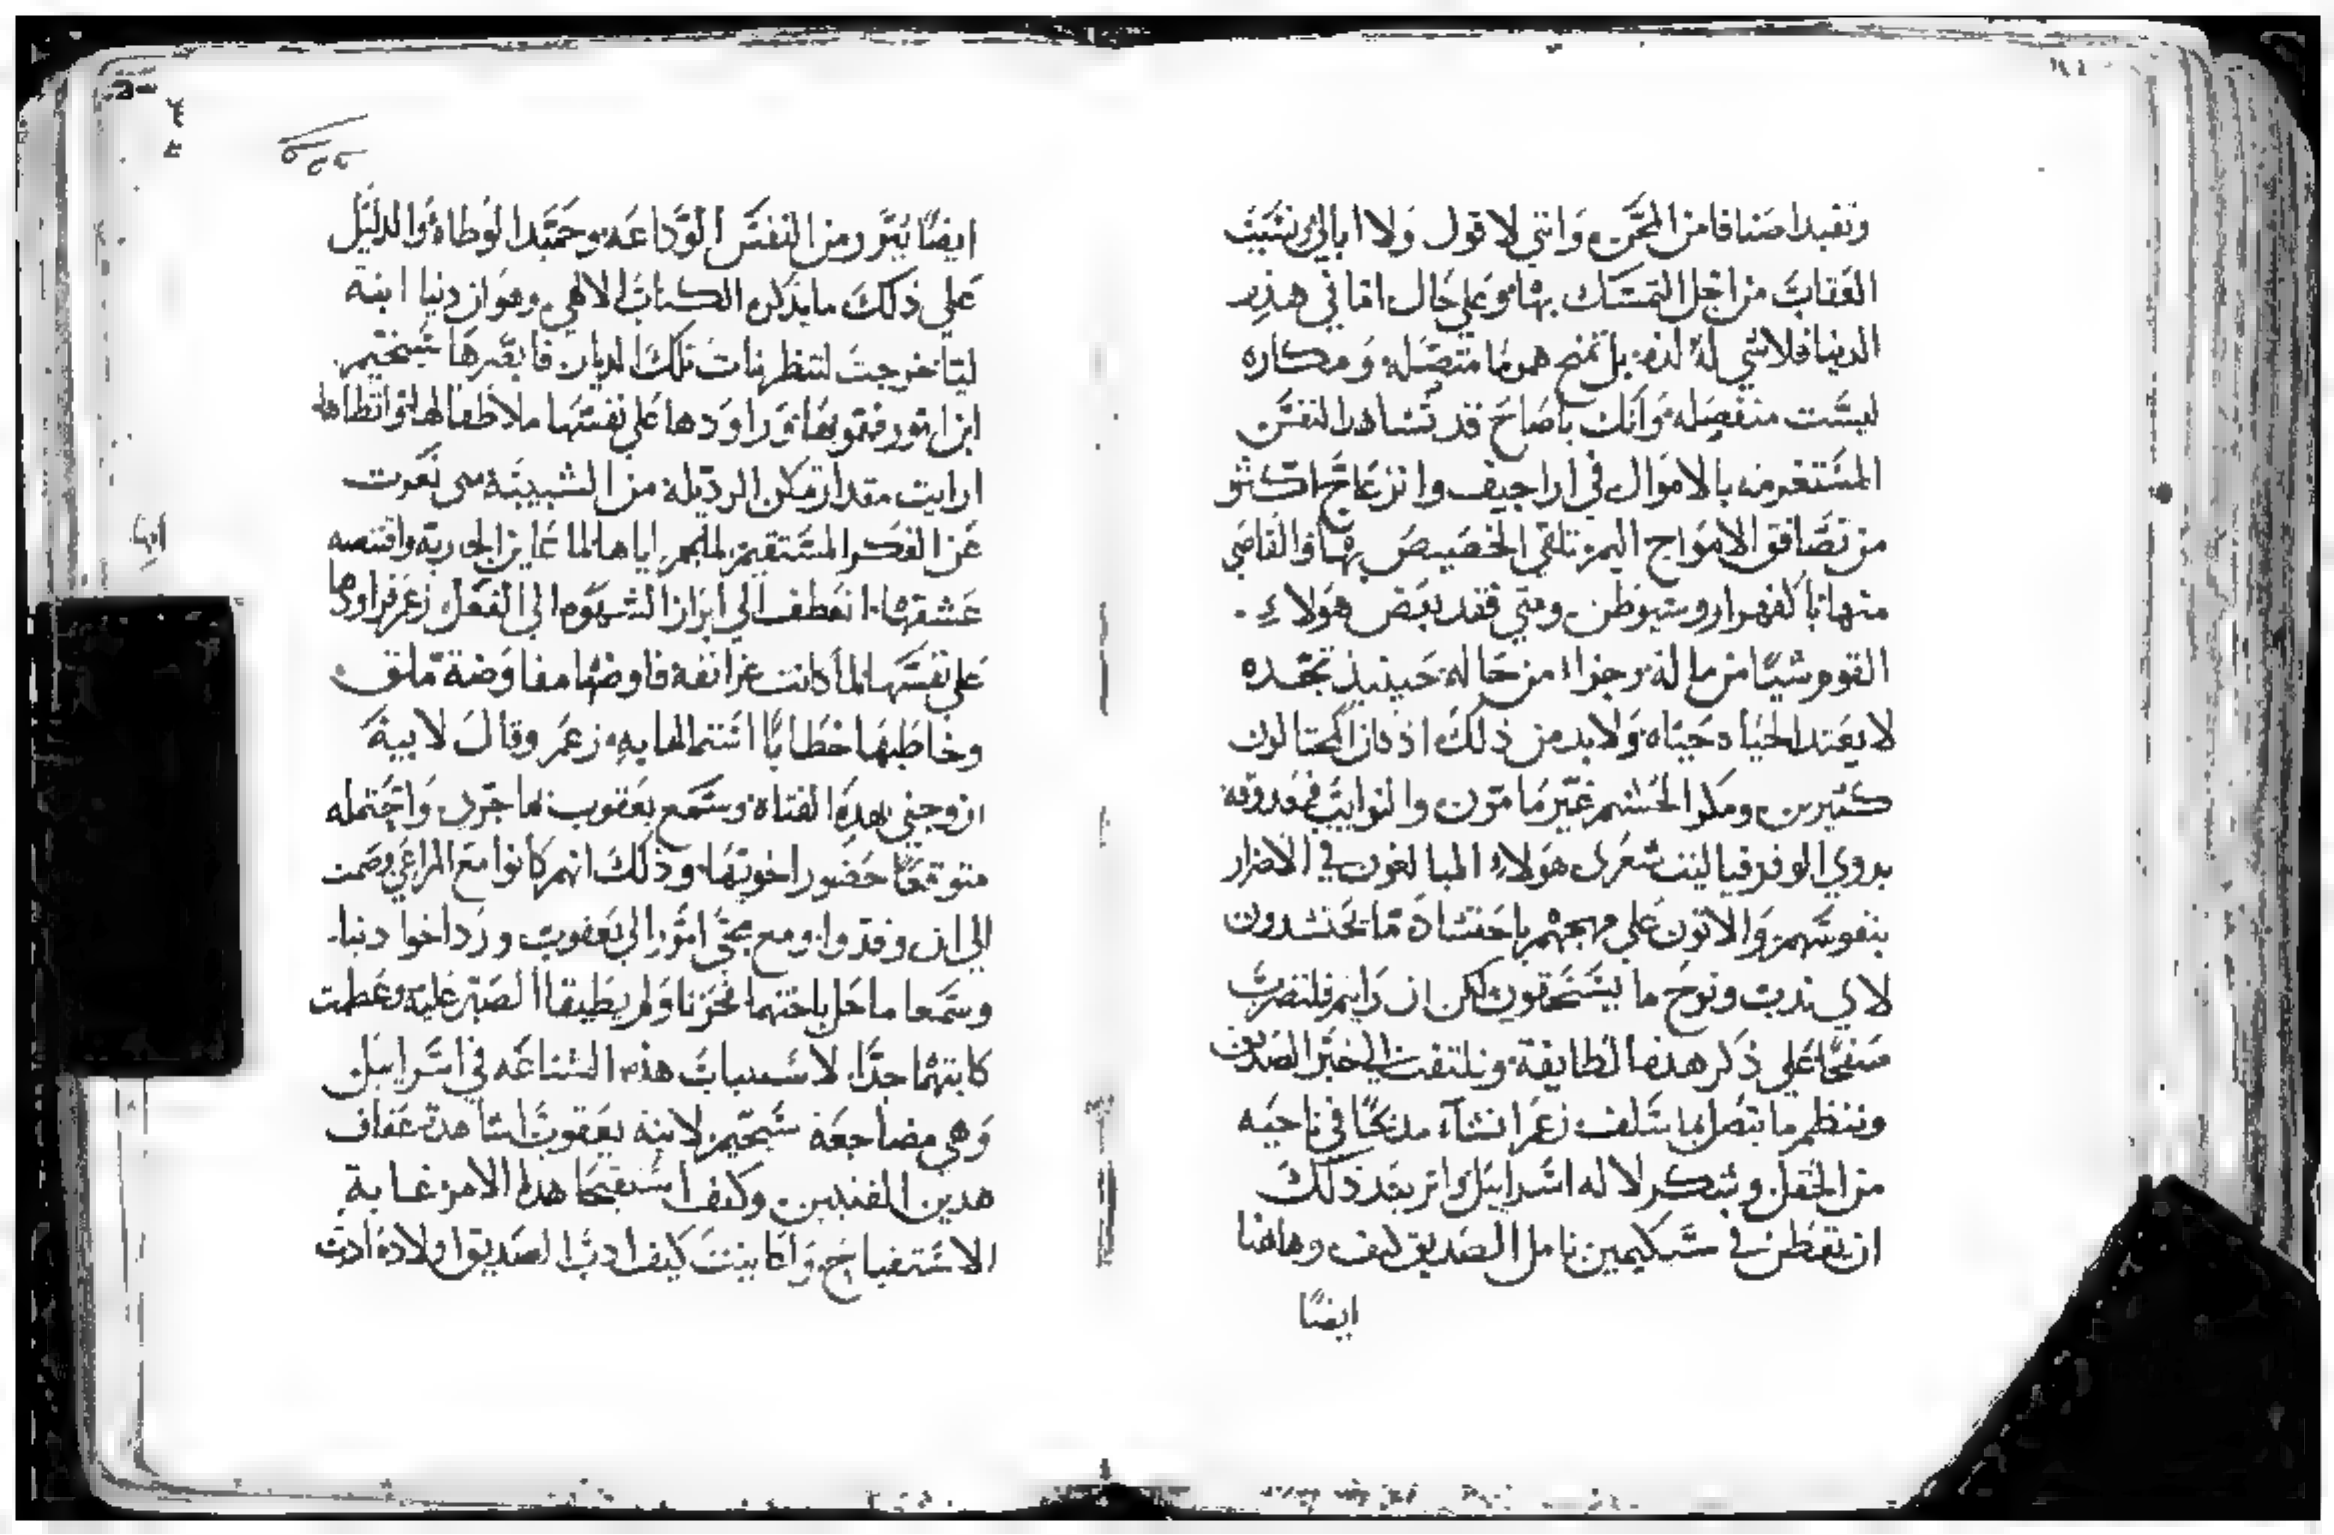 وتفيد اصنافا من المحن وانني لا اقول ولا ابالي بتثبيت
العقاب من اجل التمسك بها وعلي حال اما في هذه
الدنيا فلا شي له لذه بل تمنح هموما متصله ومكاره
ليست منفصله وانك ياصاح قد تشاهد النفس
المستغرمه بالاموال في اراجيف وانزعاج اكثر
من تصافق الامواج اليم تلقي الخصيص بها والقاصي
منها باكفهرار وسوظن ومتي فقد بعض هولاء
القوم شيا من ماله وجزا من حاله حينيذ تجده
لا يعتد الحياه حياه ولا بد من ذلك اذ كان المحتالون
كثيرين ومكرا لخشهم غير مامون والنوايب
بدوي الوفر فياليت شعري هولاء المبالغون في الاضرار
بنفوسهم والاتون علي مهجهم باحتشاد ما يحتشدون
لاي ندب ونوح ما يستحقون لكن ان رايتم فلنضرب
صفحا علي ذكر هذه الطايفة ونلتفت الي خبر الصديق
وننظم ما يتصل بما سلف زعم انشاء مدبحا في ناحيه
من الحقل وشكر لا له اسراييل واثر بعد ذلك
ان يقطن في شكيمين تامل الصديق كيف وهاهنا
ايضا
ايضا يبرر من النفس الوداعه وحميد الوطاه والدليل
علي ذلك مايذكره الكتاب الالاهي وهو ان دنيا ابنة
ليا خرجت لتنظر بنات تلك الديار فابصرها شخيم
ابن امور فتمويها وراودها علي نفسها ملاطفا لها
ارايت مقدار تمكن الرديلة من الشبيبة متي تعرت
عن الفكر المستقيم الملجم اياها لما عاين الجاريه واقتنصه
عشقها انعطف الي ابراز الشهوه الي الفعل زعم فراودها
علي نفسها لما كانت فاوضها مفاوضة ملق
وخاطبها خطابا استمالها به زعم وقال لابية
ازوجني بهذه الفتاة وسمع يعقوب ما جري واحتمله
متوقعا حضور اخوتها وذلك انهم كانوا مع المراعي وصمت
الي ان وفدوا ومع مجي امور الي يعقوب ورد اخوا دنيا
وسمعا ما حل باختهما فحزنا ولم يطيقا الصبر عليه وعظمت
كابتهما جدا لاسباب هذه الشناعه في اسراييل
وهي مضاجعه شخيم لابنه يعقوب اشاهدت عفاف
هدين الفتيين وكيف استقبحا هدا الامر غاية
الاستقباح واعاينت كيف ادب الصديق اولاده ادب